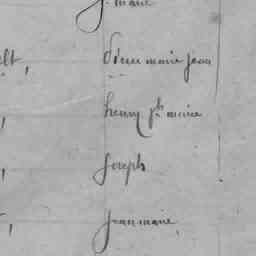 j. marie
lt, marie jean
henry jh marie
joseph
jean marie